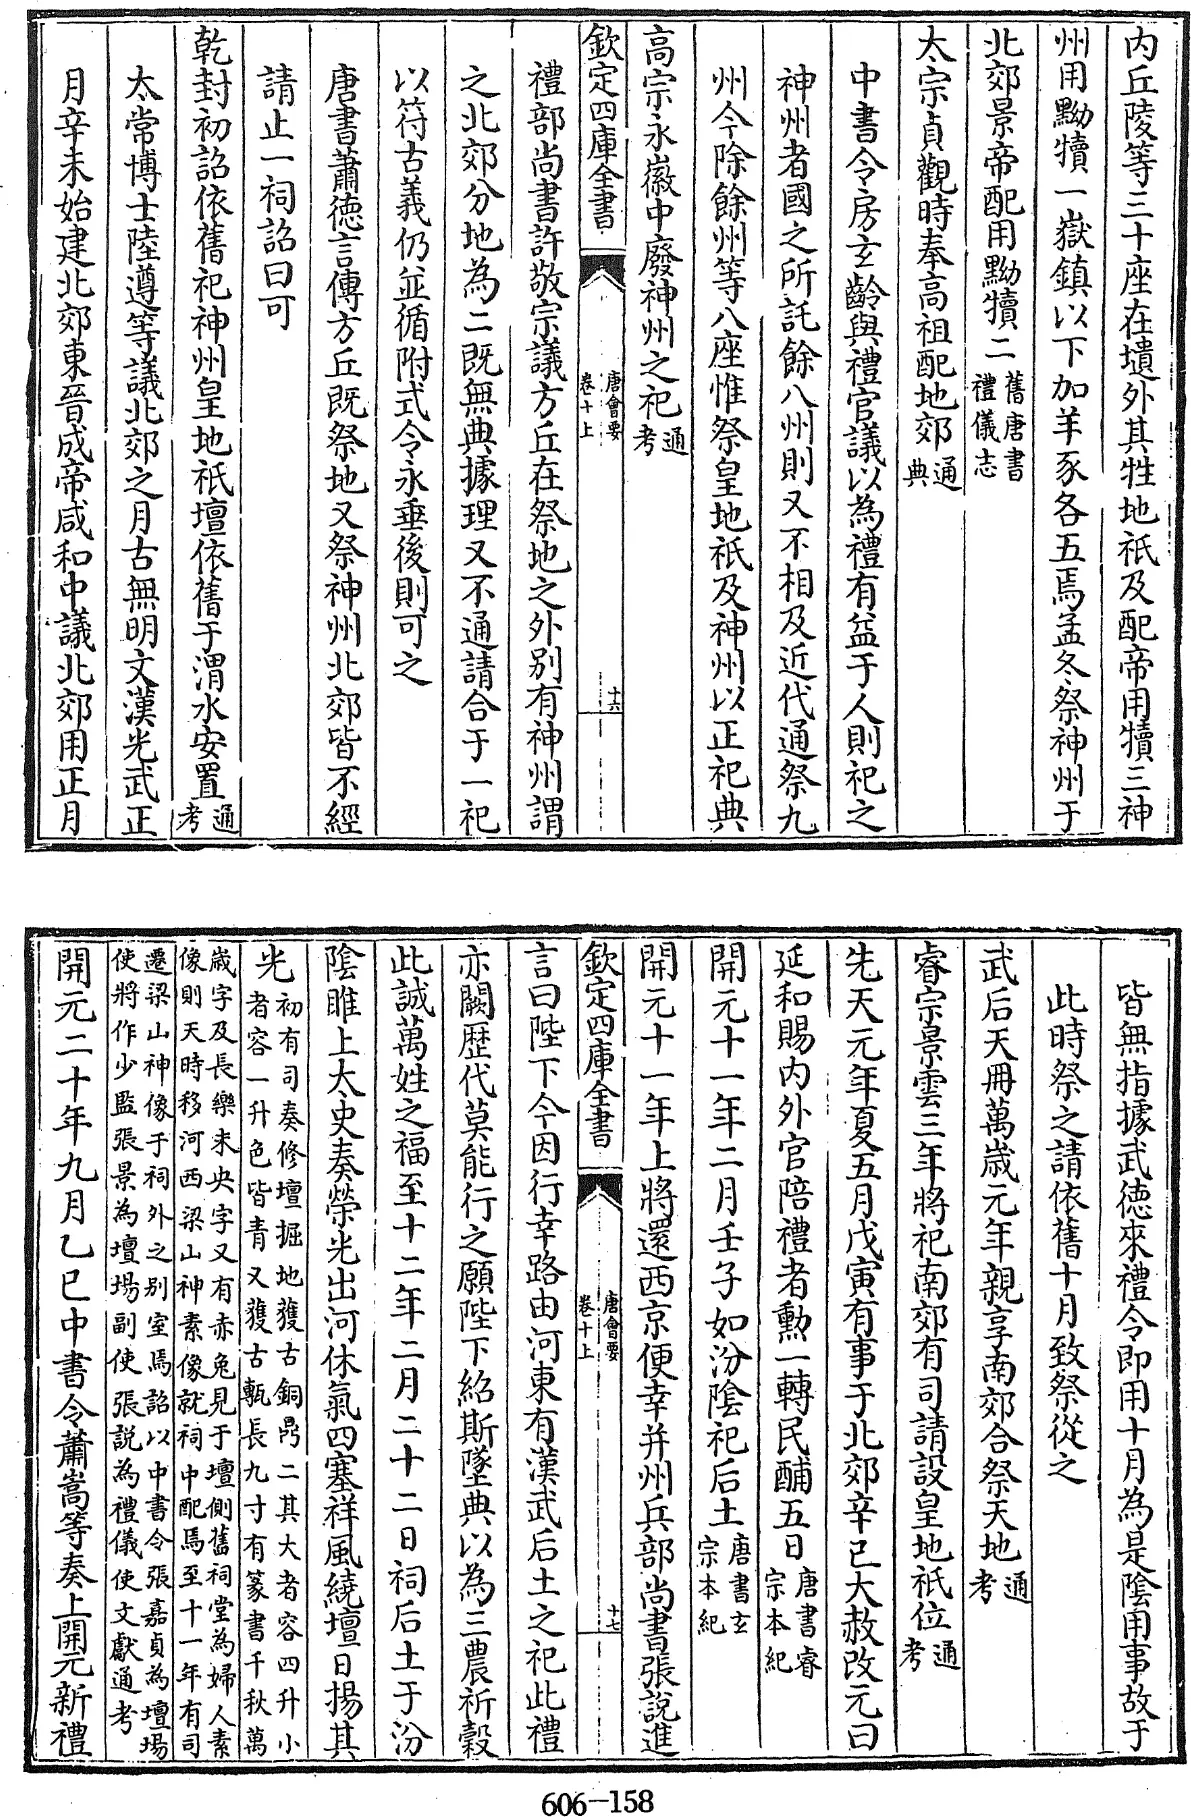 内丘陵等三十座在壝外其牲地祇及配帝用犢三神
州用黝犢一嶽鎮以下加羊豕各五焉孟冬祭神州于
北郊景帝配用黝犢二舊唐書禮儀志
太宗貞觀時奉高祖配地郊通典
中書令房玄齡與禮官議以為禮有益于人則祀之
神州者國之所託餘八州則又不相及近代通祭九
州今除餘州等八座惟祭皇地祇及神州以正祀典
高宗永徽中廢神州之祀通考
欽定四庫全書
唐會要
卷十上
十六
禮部尚書許敬宗議方丘在祭地之外別有神州謂
之北郊分地為二既無典據理又不通請合于一祀
以符古義仍並循附式令永垂後則可之
唐書蕭德言傳方丘既祭地又祭神州北郊皆不經
請止一祠詔曰可
乾封初詔依舊祀神州皇地祇壇依舊于渭水安置通考
太常博士陸遵等議北郊之月古無明文漢光武正
月辛未始建北郊東晉成帝咸和中議北郊用正月
皆無指據武德來禮令即用十月為是陰用事故于
此時祭之請依舊十月致祭從之
武后天冊萬歲元年親享南郊合祭天地通考
睿宗景雲三年將祀南郊有司請設皇地祇位通考
先天元年夏五月戊寅有事于北郊辛巳大赦改元曰
延和賜内外官陪禮者勲一轉民酺五日唐書睿宗本紀
開元十一年二月壬子如汾陰祀后土唐書玄宗本紀
開元十一年上將還西京便幸并州兵部尚書張說進
欽定四庫全書
唐會要
卷十上
十七
言曰陛下今因行幸路由河東有漢武后土之祀此禮
亦闕歷代莫能行之願陛下紹斯墜典以為三農祈穀
此誠萬姓之福至十二年二月二十二日祠后土于汾
陰脽上太史奏榮光出河休氣四塞祥風繞壇日揚其
光初有司奏修壇掘地獲古銅鼎二其大者容四升小
者容一升色皆青又獲古甎長九寸有篆書千秋萬
歲字及長樂未央字又有赤兔見于壇側舊祠堂為婦人素
像則天時移河西梁山神素像就祠中配焉至十一年有司
遷梁山神像于祠外之別室焉詔以中書令張嘉貞為壇場
使將作少監張景為壇場副使張說為禮儀使文獻通考
開元二十年九月乙巳中書令蕭嵩等奏上開元新禮
606-158